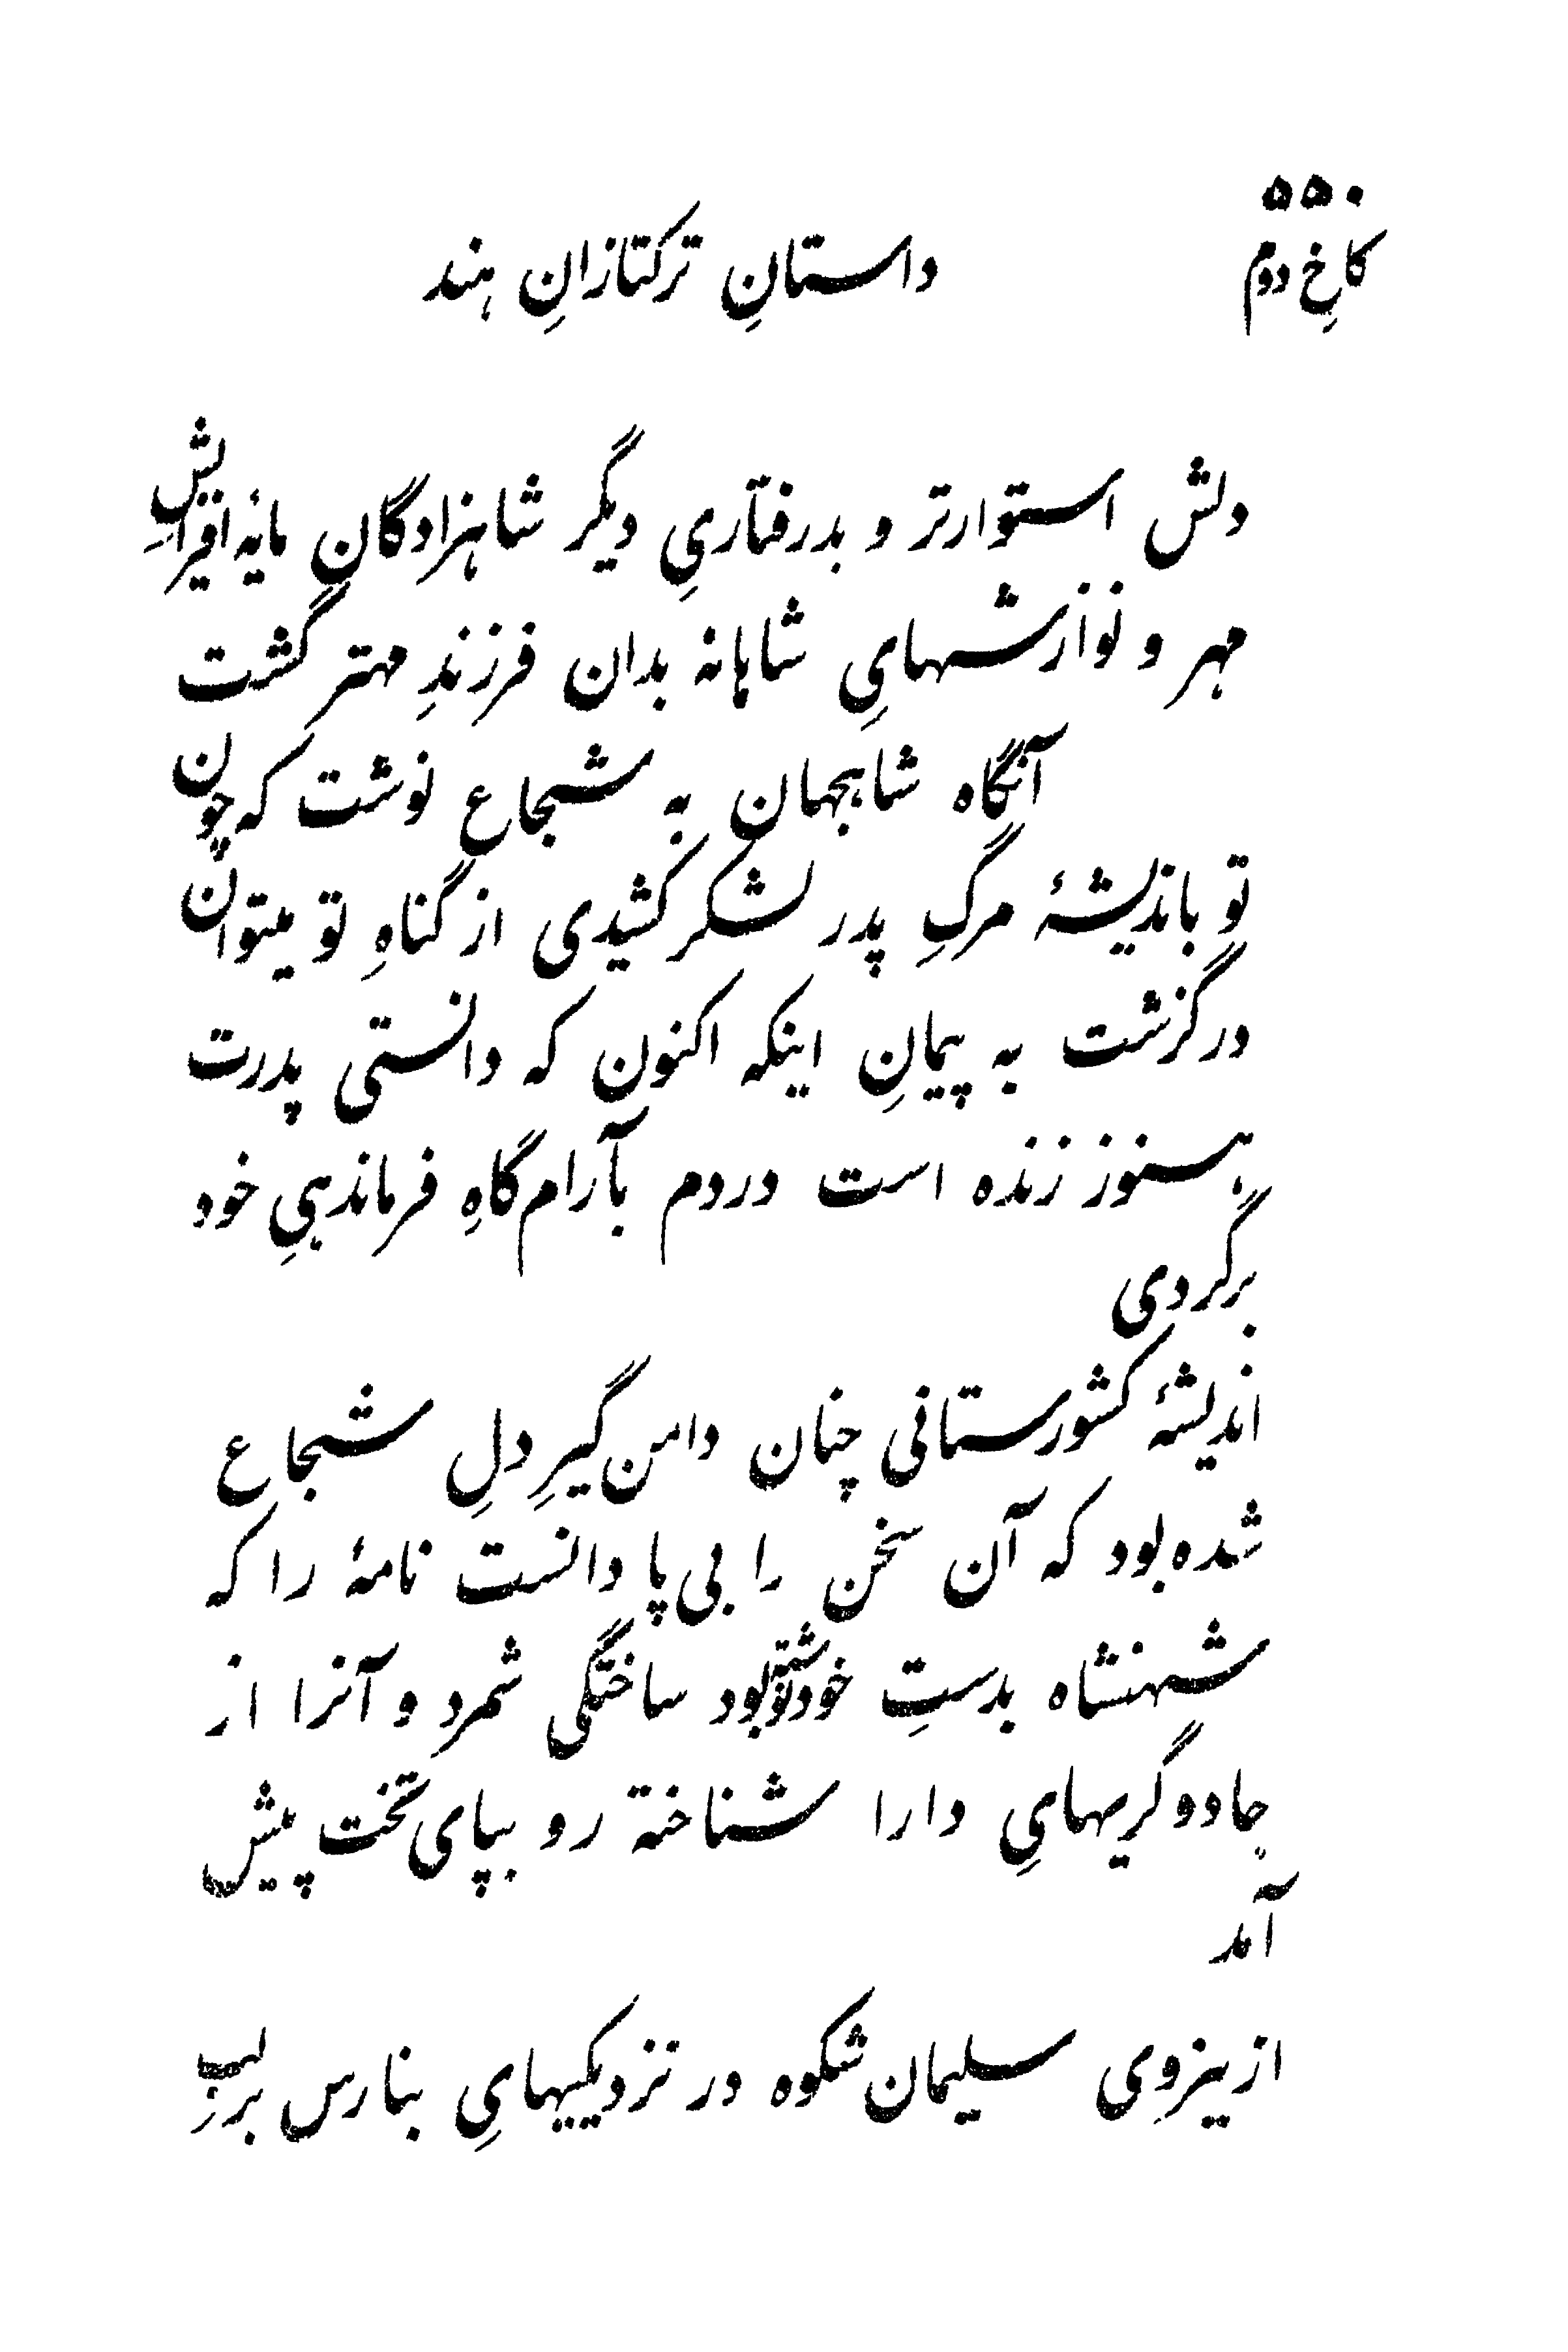 ۵۵۰
کاخِ دوم
داستانِ ترکتازانِ هند
دلش استوارتر و بدرفتاریِ دیگر شاهزادگان مایۀ افزایشِ
مهر و نوازشهایِ شاهانه بدان فرزندِ مهتر گشت
آنگاه شاهجهان به شجاع نوشت که چون
تو باندیشۀ مرگِ پدر لشکر کشیدی از گناهِ تو میتوان
درگزشت به پیمانِ اینکه اکنون که دانستی پدرت
هنوز زنده است دردم بآرام‌گاهِ فرماندهیِ خود
برگردی
اندیشۀ کشورستانی چنان دامن‌گیرِ دلِ شجاع
شده بود که آن سخن را بی‌پا دانست نامۀ را که
شهنشاه بدستِ خود نوشته بود ساختگی شمرد و آنرا از
جادوگریهایِ دارا شناخته رو بپای‌تخت پیش
آمد
ازینروی سلیمان‌شکوه در نزدیکیهایِ بنارس برلبِ